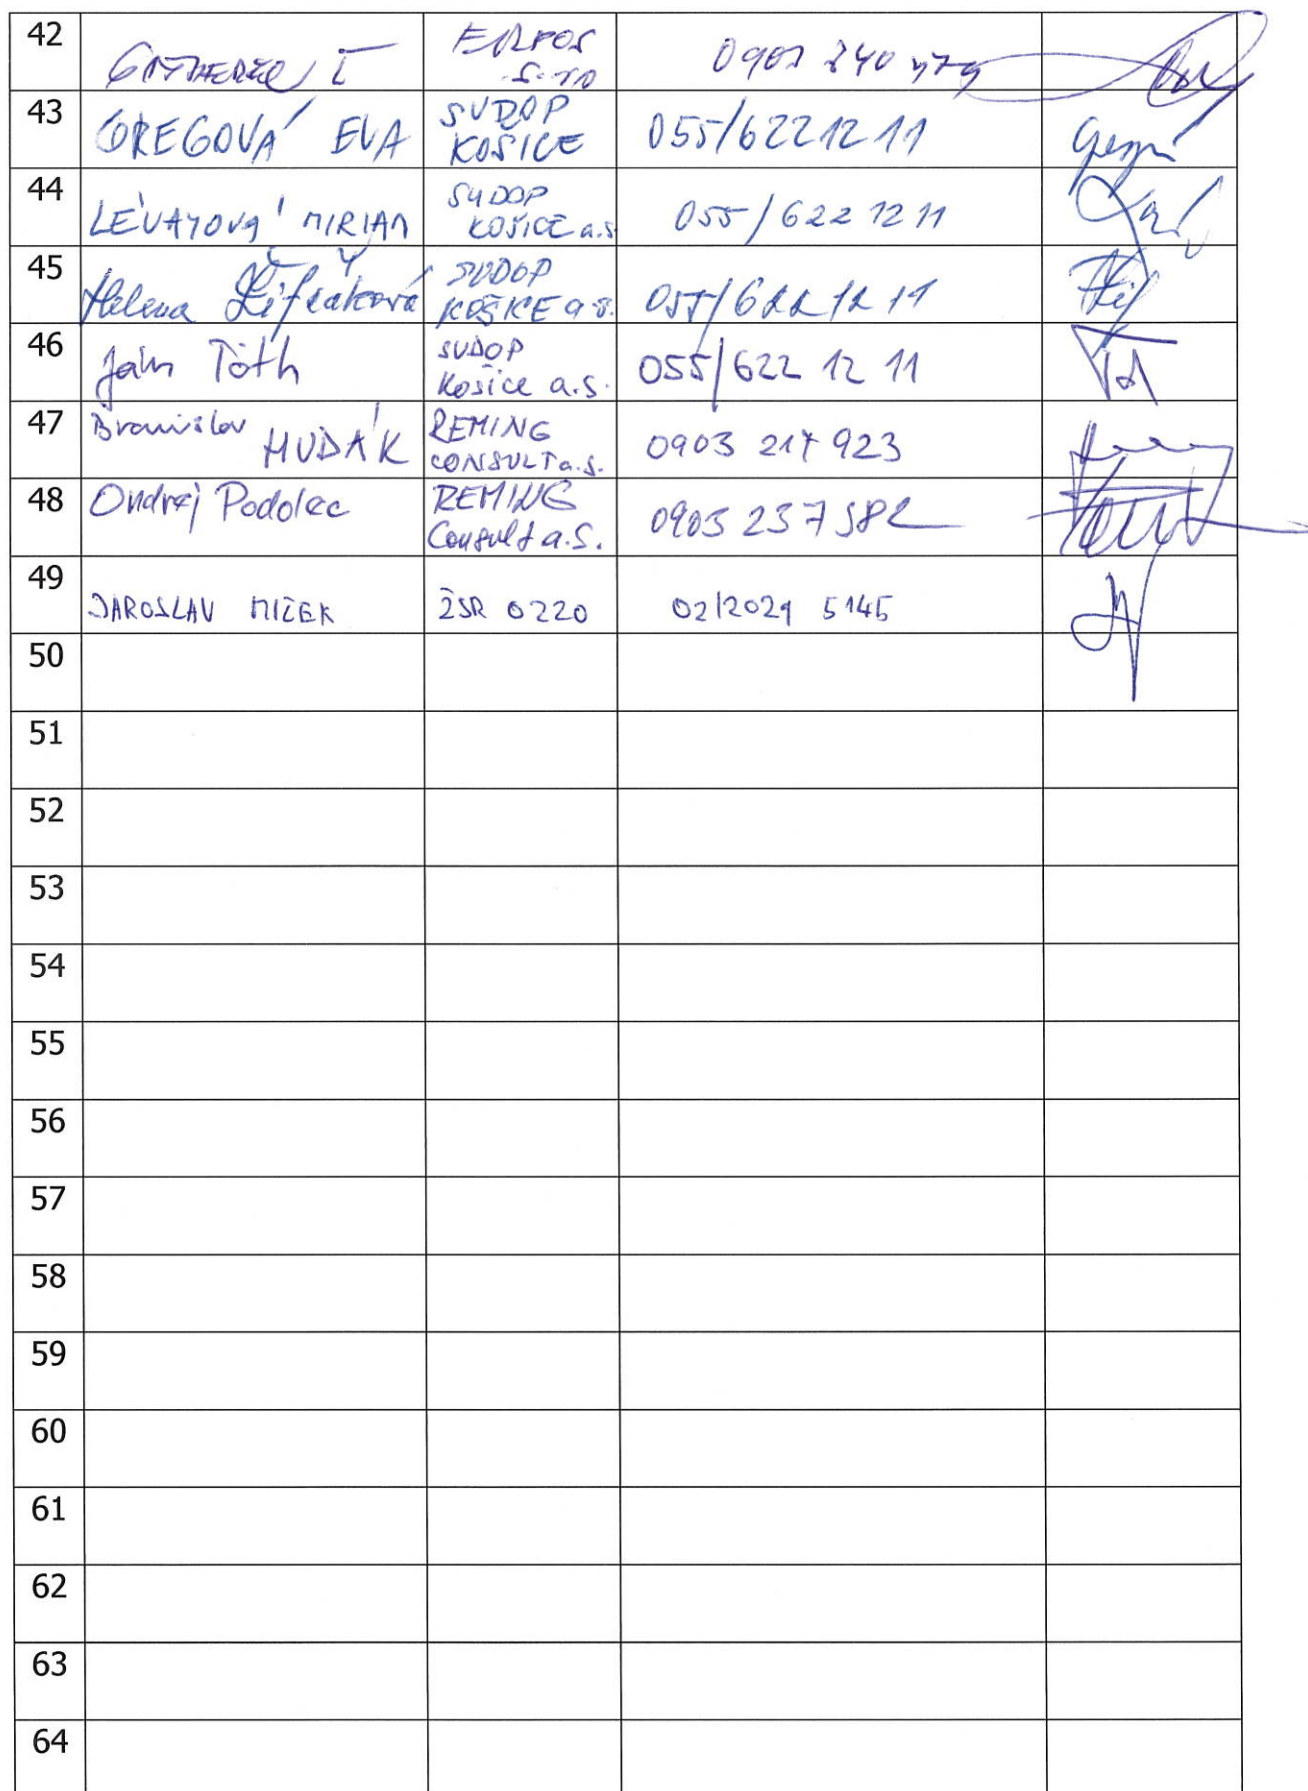 42 S.r.o
43 GREGOVÁ EVA SUDOP KOŠICE 055/622 12 11
44 LÉVAYOVÁ MIRIAM SUDOP KOŠICE a.s 055/622 12 11
45 Helena SUDOP KOŠICE a.s. 055/622 12 11
46 Ján Tóth SUDOP Košice a.s. 055/622 12 11
47 Branislav HUDÁK REMING CONSULT a.s. 0903 217 923
48 Ondrej Podolec REMING Consult a.s. 0903 237 582
49 JAROSLAV MIŽEK ŽSR 0220 02/2029 5145
50
51
52
53
54
55
56
57
58
59
60
61
62
63
64